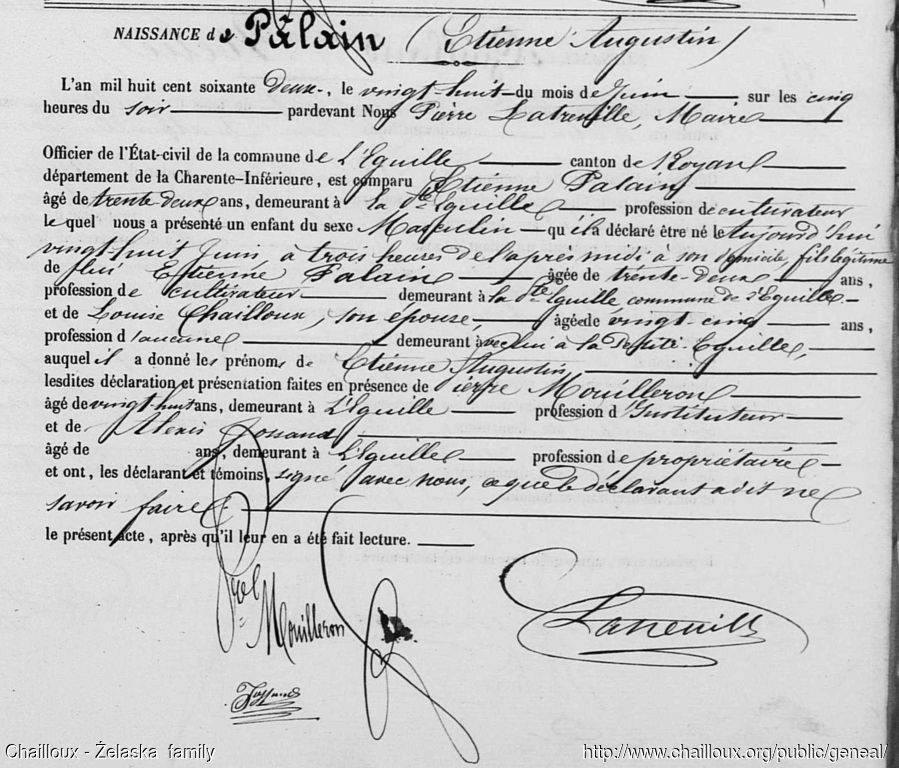 NAISSANCE de Palain (Etienne Augustin)
L'an mil huit cent soixante deux, le vingt-huit du mois de Juin sur les cinq
heures du soir pardevant Nous Pierre Latreuille, Maire
Officier de l'État-civil de la commune de L'Eguille canton de Royan
département de la Charente-Inférieure, est comparu Etienne Palain
âgé de trente-deux ans, demeurant à la pte Eguille profession de cultivateur
lequel nous a présenté un enfant du sexe Masculin qu'il a déclaré être né le aujourd'hui
vingt-huit Juin, à trois heures de l'après midi à son domicile, fils légitime
de lui Etienne Palain âgée de trente-deux ans,
profession de cultivateur demeurant à la pte Eguille, commune de l'Eguille
et de Louise Chailloux, son épouse, âgée de vingt-cinq ans,
profession d'aucune demeurant avec lui à la petite Eguille,
auquel il a donné les prénoms de Etienne Augustin,
lesdites déclaration et présentation faites en présence de Pierre Mouilleron
âgé de vingt-huit ans, demeurant à L'Eguille profession d'Instituteur
et de Alexis
âgé de ans, demeurant à L'Eguille profession de propriétaire
et ont, les déclarant et témoins, signé avec nous, ce que le déclarant a dit ne
savoir faire.
le présent acte, après qu'il leur en a été fait lecture.
Mouilleron
Latreuille
Chailloux - Želaska family http://www.chailloux.org/public/geneal/